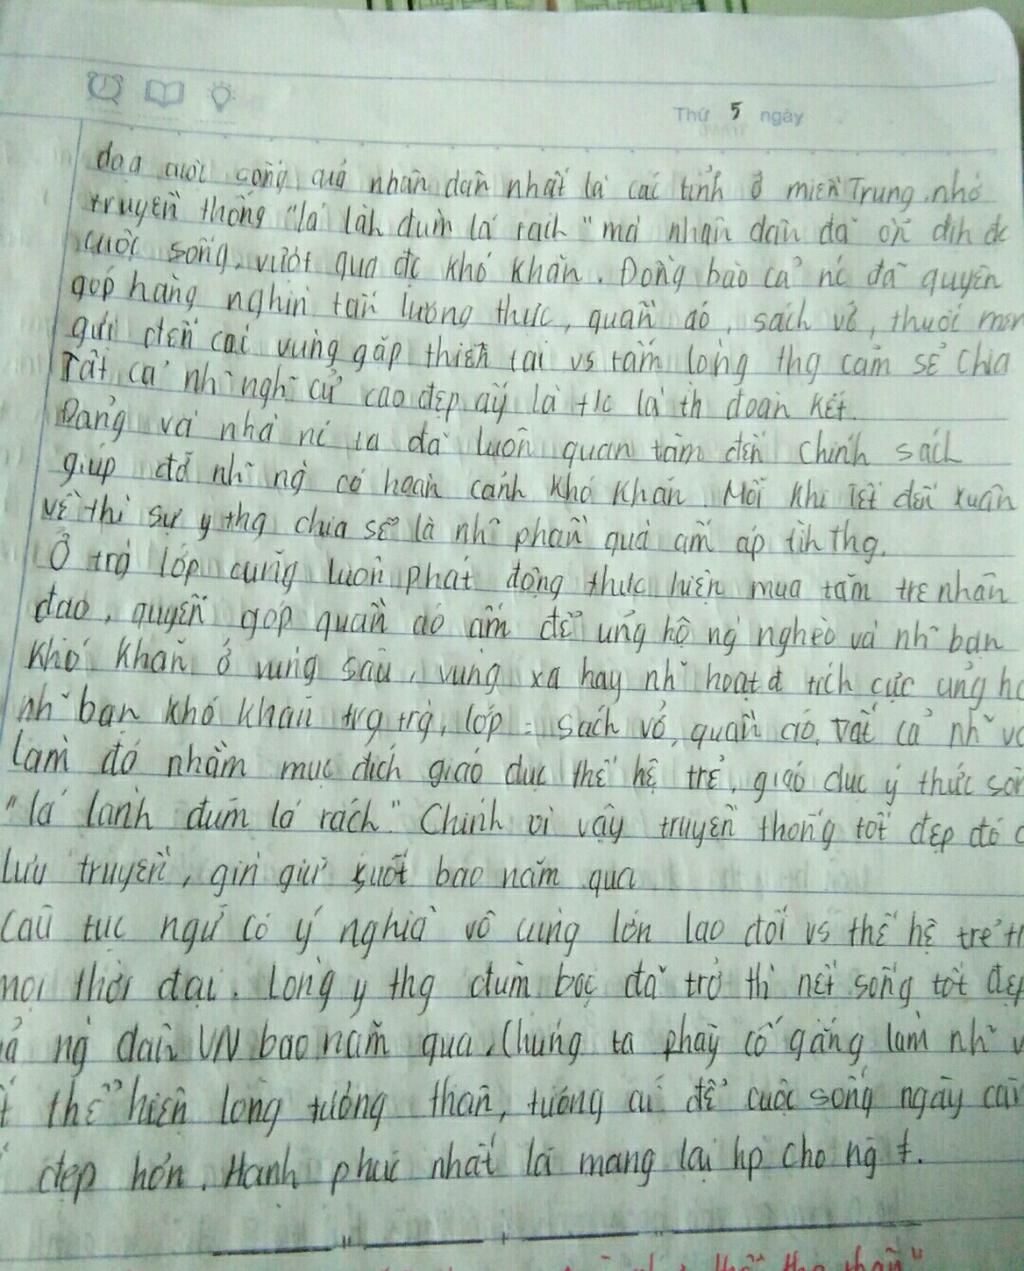 Thứ 5 ngày
doạ cuộc sống quả nhân dân nhất là các tỉnh ở miền Trung, nhờ
truyền thống "lá làh đùm lá rách" mà nhân dân đã ổn địh đc
cuộc sống, vượt qua đc khó khăn. Đồng bào cả nc đã quyên
góp hàng nghìn tấn lương thực, quần áo, sách vở, thuốc men
gửi đến các vùng gặp thiên tai vs tấm lòng thg cảm sẻ chia
Tất cả nh~ nghĩ cử cao đẹp ấy là t/c là th đoàn kết.
Đảng và nhà nc ta đã luôn quan tâm đến chính sách
giúp đỡ nh~ ng có hoàn cảnh khó khăn. Mỗi khi Tết đến xuân
về thì sự y thg chia sẻ là nh~ phần quà ấm áp tìh thg.
Ở trg lớp cũng luôn phát động thực hiện mua tăm tre nhân
đạo, quyên góp quần áo ấm để ủng hộ ng nghèo và nh~ bạn
khó khăn ở vùng sâu, vùng xa hay nh~ hoạt đ tích cực ủng hộ
nh~ bạn khó khăn trg trg, lớp: sách vở, quần áo. Tất cả nh~
làm đó nhằm mục đích giáo dục thế hệ trẻ, giáo dục ý thức
"lá lành đùm lá rách". Chính vì vậy truyền thống tốt đẹp đó
lưu truyền, gìn giữ suốt bao năm qua
Câu tục ngữ có ý nghĩa vô cùng lớn lao đối vs thế hệ trẻ
mọi thời đại. Lòng y thg đùm bọc đã trở th nét sống tốt đẹp
ng dân VN bao năm qua. Chúng ta phải cố gắng làm nh~
thể hiện lòng tương thân, tương ái để cuộc sống ngày càng
đẹp hơn. Hạnh phúc nhất là mang lại hp cho ng #.